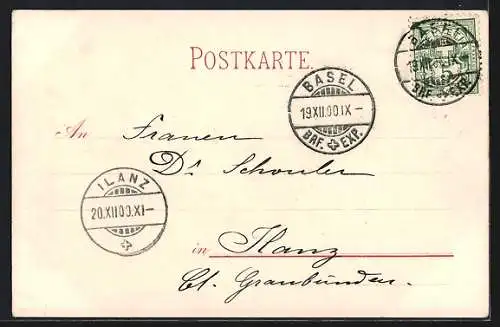 POSTKARTE.
BASEL
19 XII.00.IX–
BRF. EXP.
BASEL
19 XII.00.IX–
BRF. EXP.
An Frauen
Dr Schouler
ILANZ
20.XII.00.XI–
in Ilanz
Ct. Graubünden.